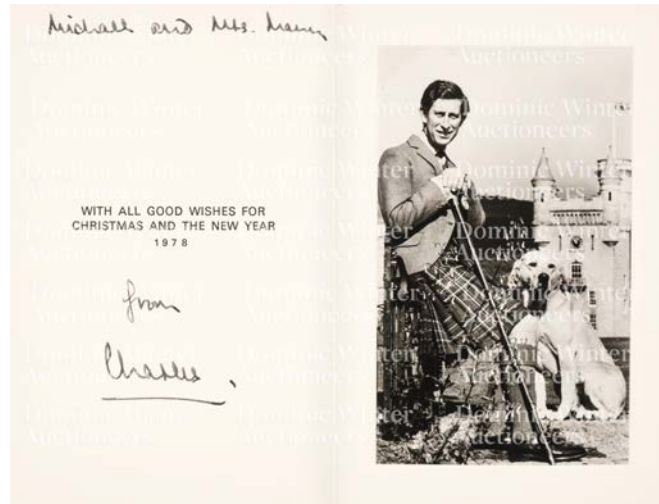 Michael and Mrs.
WITH ALL GOOD WISHES FOR
CHRISTMAS AND THE NEW YEAR
1978
from
Charles.
Dominic Winter
Auctioneers